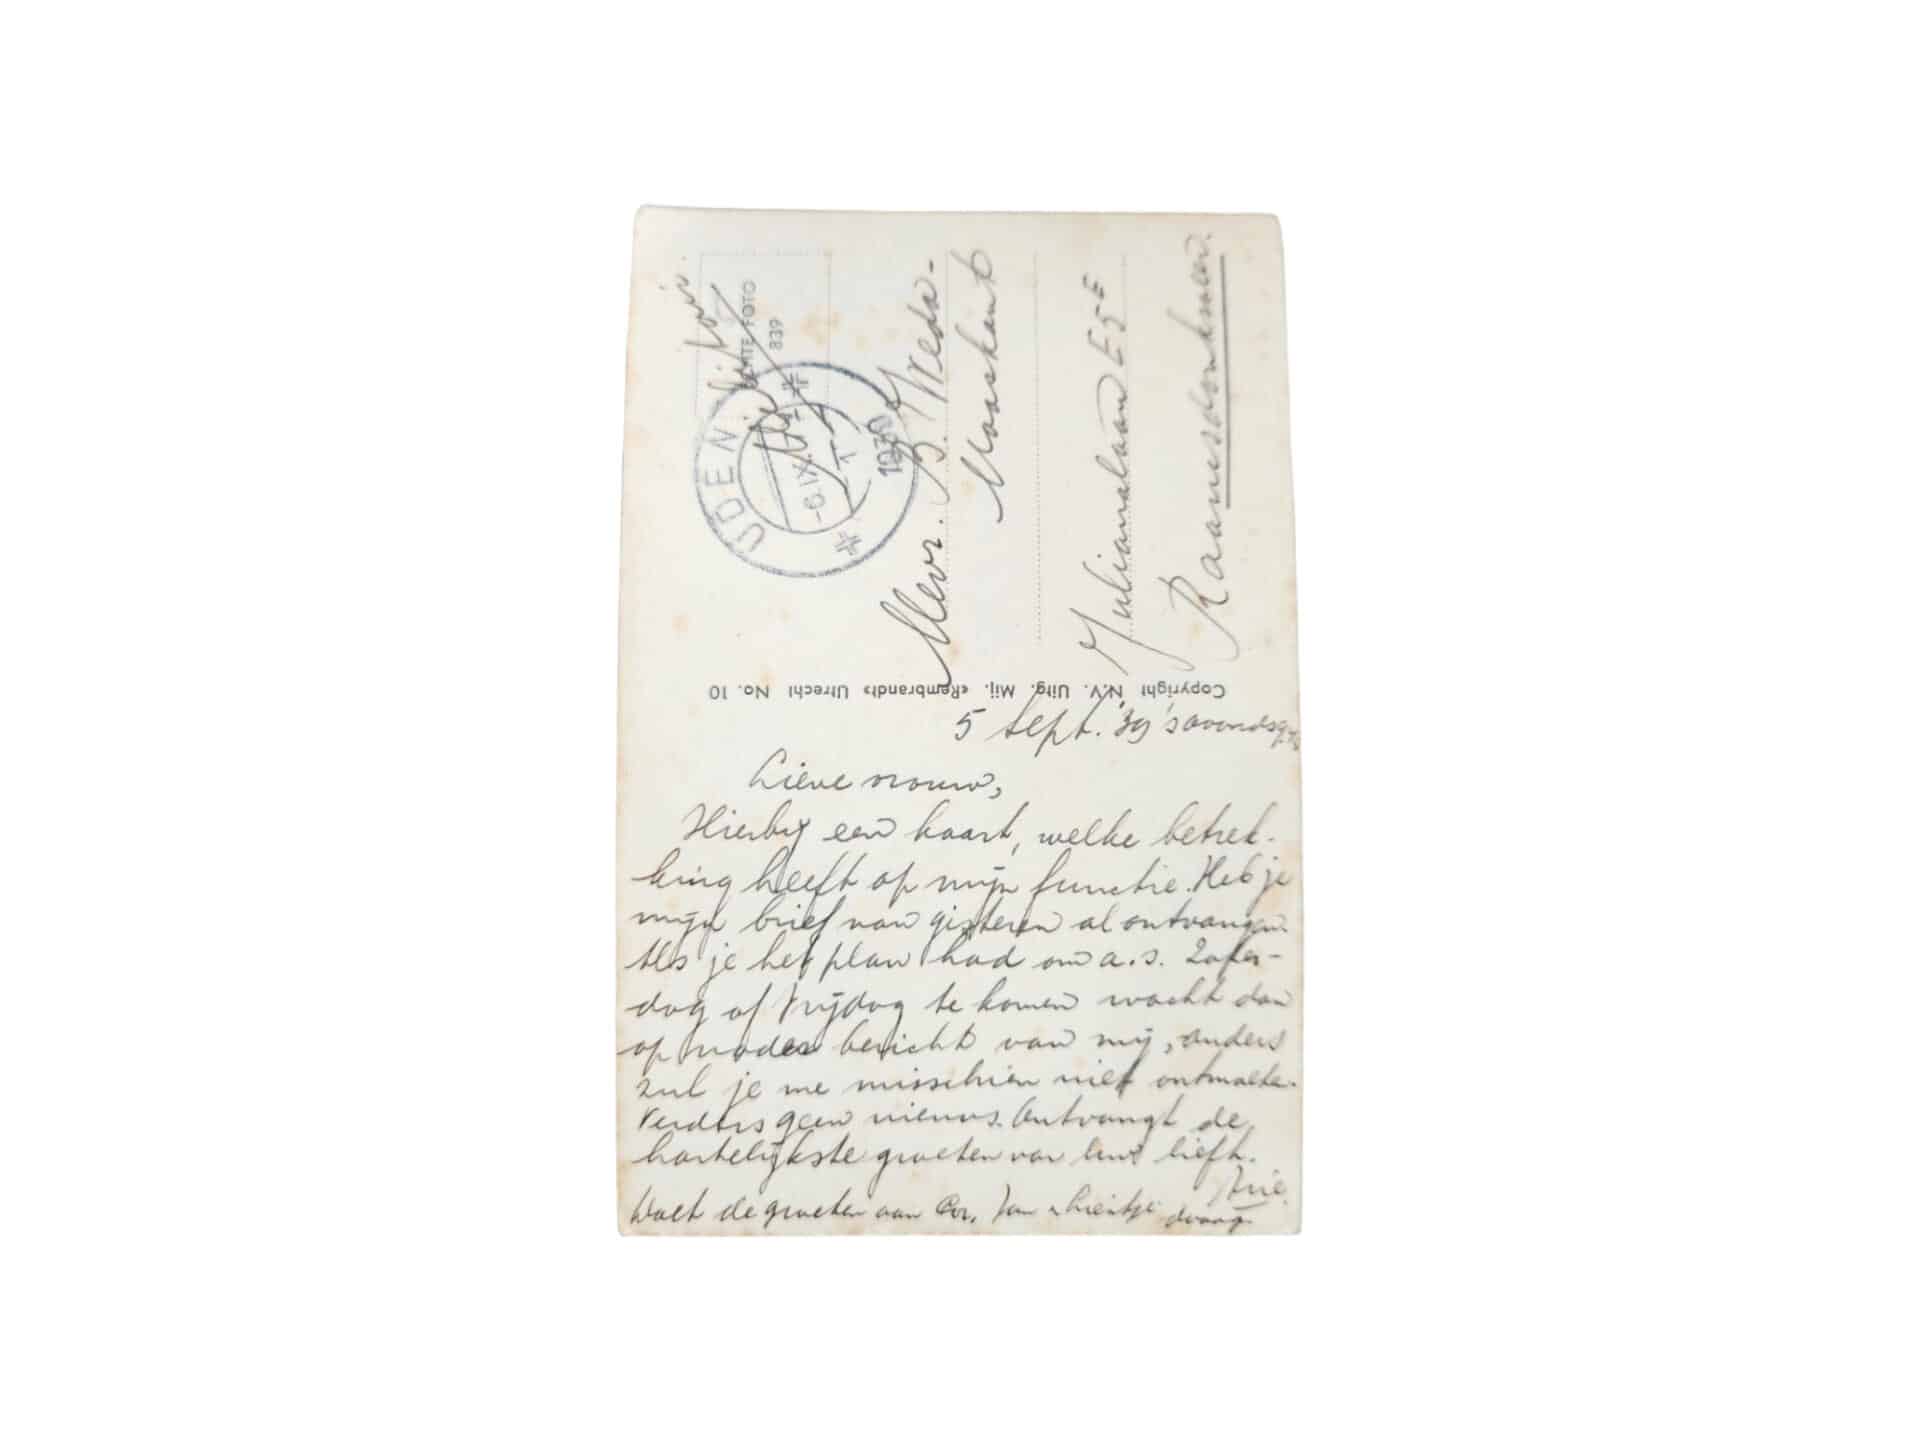 Militair
ECHTE FOTO
839
UDEN
-6.IX.
1
1939
Mevr. B. Weda-
Maaskant
Julianalaan E5-E
Raamsdonksveer.
Copyright N.V. Uitg. Mij. «Rembrandt» Utrecht No. 10
5 Sept. '39 's avonds
Lieve vrouw,
Hierbij een kaart, welke betrek-
king heeft op mijn functie. Heb je
mijn brief van gisteren al ontvangen.
Als je het plan had om a.s. Zater-
dag of Vrijdag te komen wacht dan
op nader bericht van mij, anders
zul je me misschien niet ontmoeten.
Verders geen nieuws. Ontvangt de
hartelijkste groeten van liefh.
Arie.
Doet de groeten aan Cor, Jan